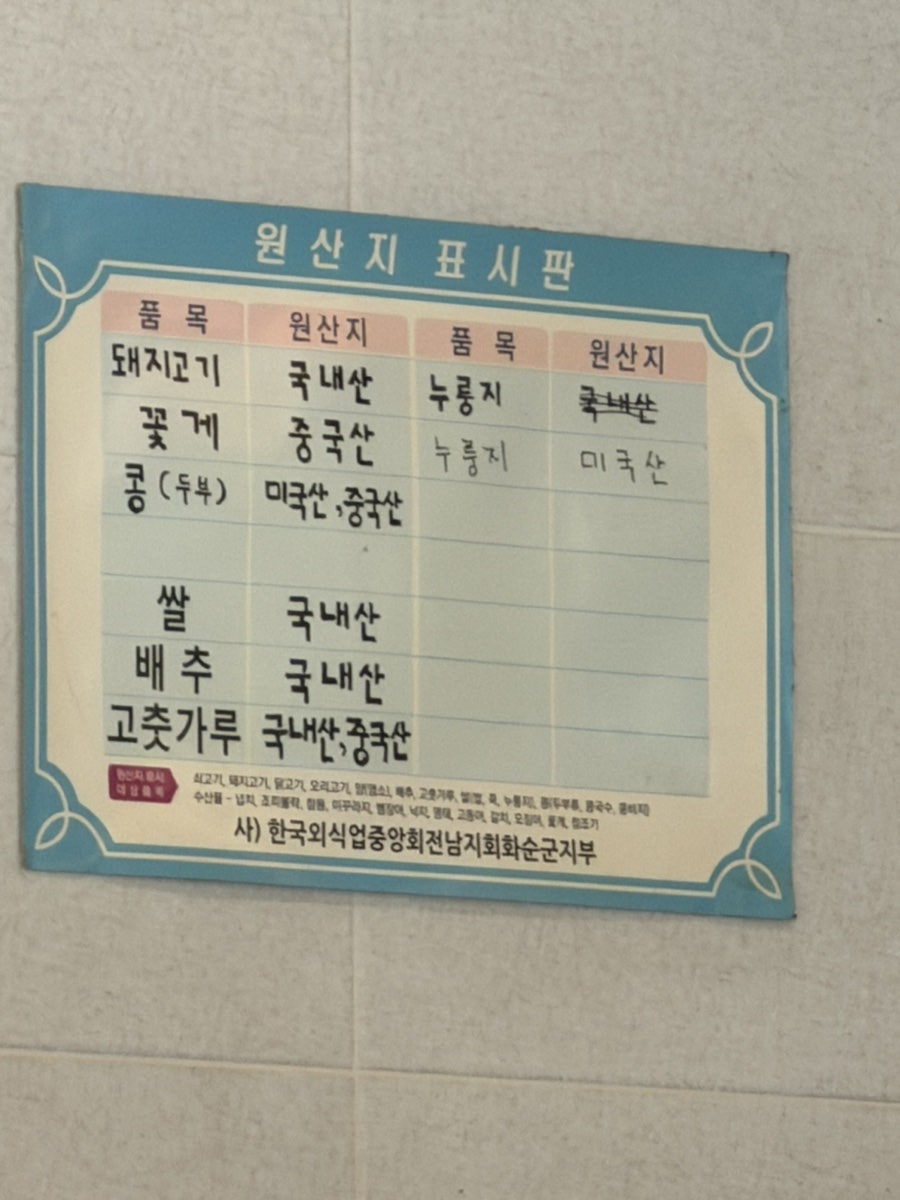 원산지 표시판
품목 원산지 품목 원산지
돼지고기 국내산 누룽지 국내산
꽃게 중국산 누룽지 미국산
콩(두부) 미국산,중국산
쌀 국내산
배추 국내산
고춧가루 국내산,중국산
원산지 표시
대상품목
쇠고기, 돼지고기, 닭고기, 오리고기, 양(염소), 배추, 고춧가루, 쌀(밥, 죽, 누룽지), 콩(두부류, 콩국수, 콩비지)
수산물 - 넙치, 조피볼락, 참돔, 미꾸라지, 뱀장어, 낙지, 명태, 고등어, 갈치, 오징어, 꽃게, 참조기
사) 한국외식업중앙회전남지회화순군지부